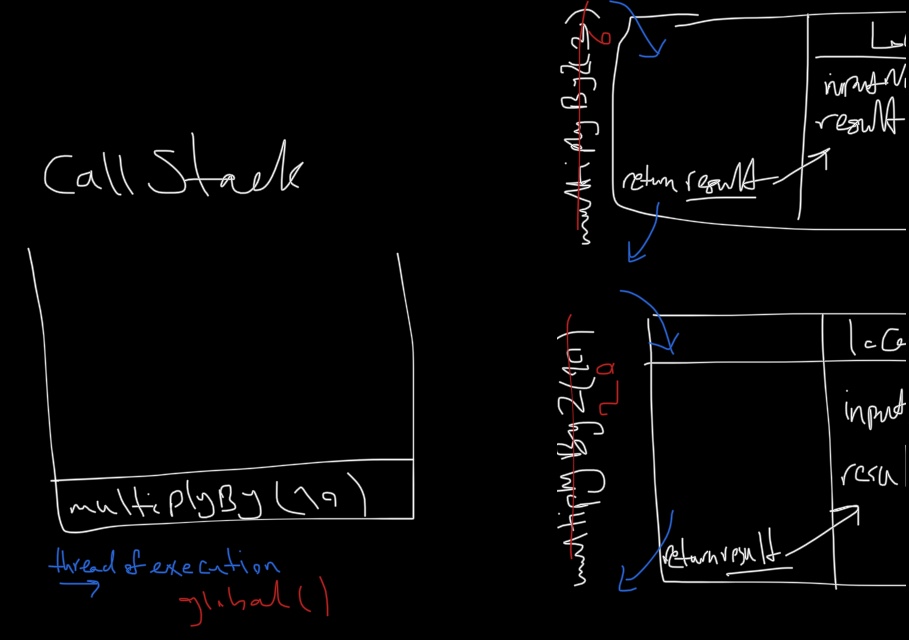 Call Stack
multiplyBy(10)
thread of execution
global()
6
inputN
result
return result
multiplyBy2(10)
20
loca
input
resu
return result